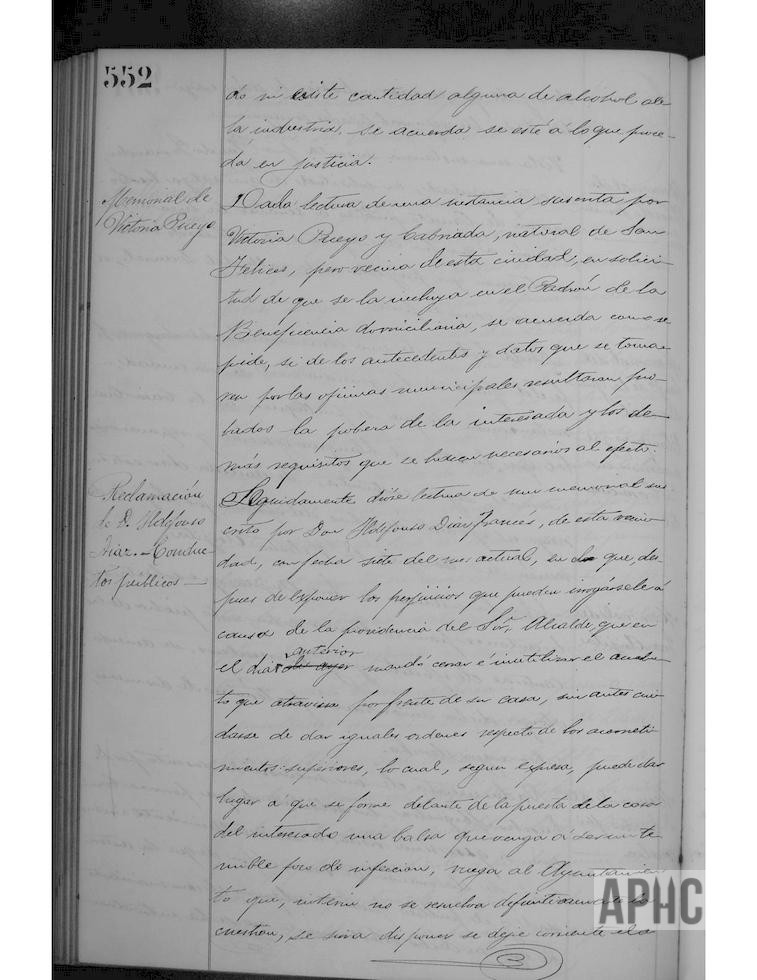 552
do ni existe cantidad alguna de alcohol de
la industria, se acuerda se esté á lo que proce-
da en justicia.
Memorial de
Victoria Pueyo
Dada lectura de una instancia suscrita por
Victoria Pueyo y Cabriada, natural de San
Felices, pero vecina de esta ciudad, en solici-
tud de que se la incluya en el Padrón de la
Beneficencia domiciliaria, se acuerda como se
pide, si de los antecedentes y datos que se toma-
ren por las oficinas municipales resultaran pro-
bados la pobreza de la interesada y los de-
más requisitos que se hacen necesarios al efecto.
Reclamación
de D. Ildefonso
Diaz.-Conduc-
tos públicos
Seguidamente dióse lectura de un memorial sus
crito por Don Ildefonso Diaz Francés, de esta vecin-
dad, con fecha siete del mes actual, en que, des-
pues de exponer los perjuicios que pueden irrogársele á
causa de la providencia del Sr. Alcalde, que en
el dia anterior de ayer mandó cerrar é inutilizar el conduc-
to que atraviesa por frente de su casa, sin antes cui-
darse de dar iguales ordenes respecto de los acometi-
mientos superiores, lo cual, segun expresa, puede dar
lugar á que se forme delante de la puerta de la casa
del interesado una balsa que venga á ser un te-
mible foco de infeccion, ruega al Ayuntamien
to que, interin no se resuelva definitivamente la
cuestion, se sirva disponer se deje corriente el
APHC